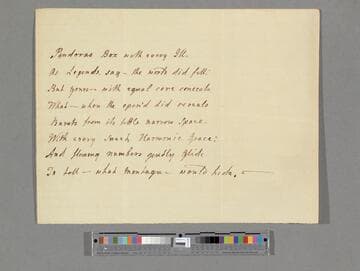 Pandoras Box with every Ill.
As Legends say – the world did fill:
But yours – with equal care conceals
What – when tho open'd did reveals
Bursts from its little narrow space
With every Harmonic Grace:
And flowing numbers gently Glide
To tell – what Montagu – would hide.